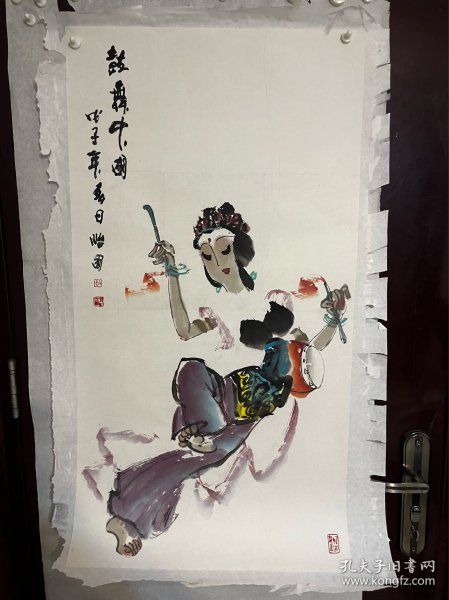 鼓舞中國
戊子年春日怡園
孔夫子旧书网
www.kongfz.com